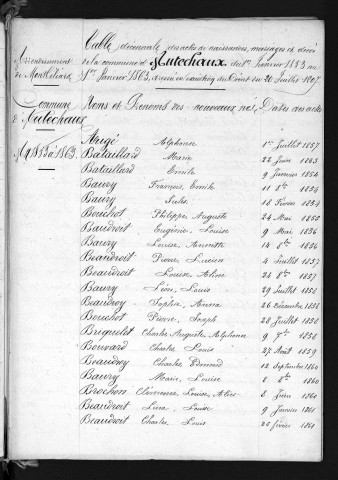 Table décennale des actes de naissances, mariages et décès
de la commune d'Autechaux du 1er Janvier 1853 au
1er Janvier 1863, dressée en exécution du Décret du 20 Juillet 1807.
Arrondissement
de Montbéliard
Commune
d'Autechaux
1853 à 1863
Noms et Prénoms des nouveaux nés, Dates des actes
Alphonse 1er Juillet 1857
Bataillard Marie 22 Juin 1853
Bataillard Emile 9 Janvier 1854
Baury François, Emile 11 8bre 1854
Baury Jules 18 Février 1854
Bouchot Philippe Auguste 24 Mai 1855
Baudroit Eugénie Louise 9 Mai 1856
Baury Louise Annette 14 8bre 1856
Beaudroit Pierre Lucien 4 Juillet 1857
Beaudroit Louise Aline 24 8bre 1857
Baury Léon, Louis 29 Juillet 1858
Beaudroy Sophie 26 Décembre 1858
Bouchot Pierre, Joseph 20 Juillet 1858
Briquelot Charles Auguste Alphonse 9 7bre 1858
Bouvard Charles Louis 27 Août 1859
Beaudroy Charles Edmond 12 Septembre 1860
Baury Marie, Louise 8 8bre 1860
Brochon Clémence, Louise 8 Juin 1860
Beaudroit Louise 9 Janvier 1861
Beaudroit Charles Louis 20 Février 1861